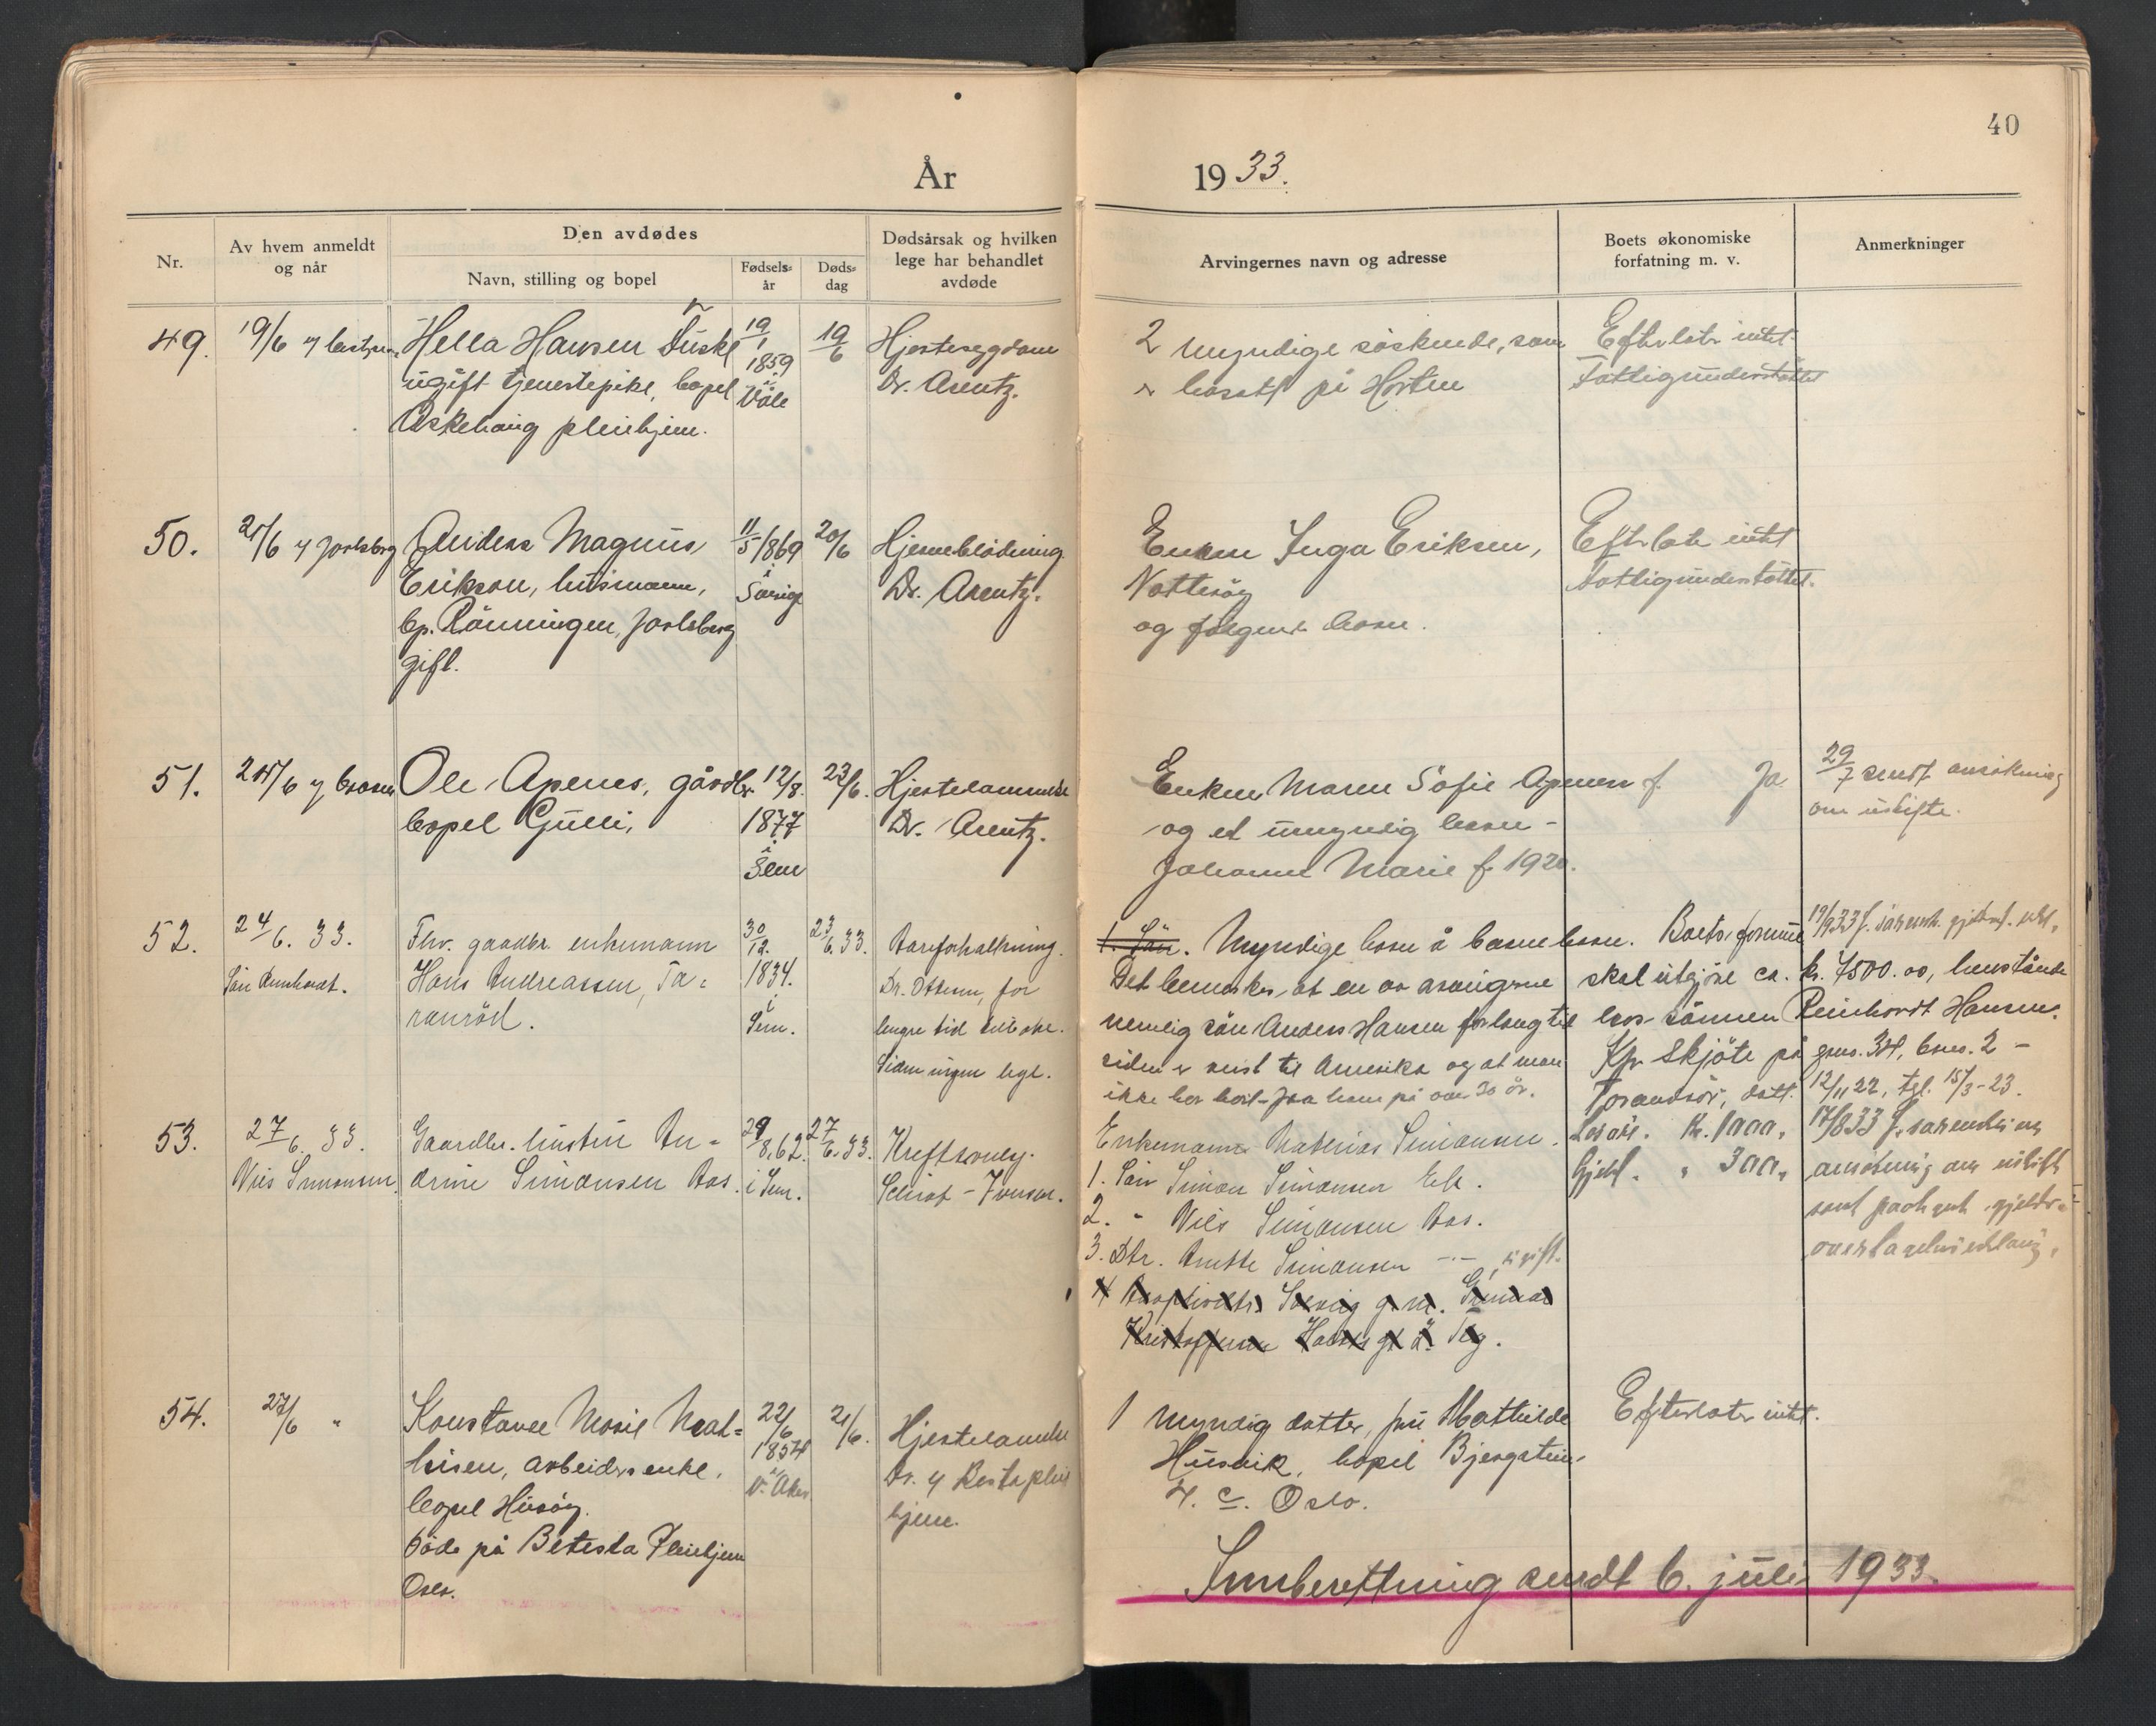 40
År 1933.
Nr.
Av hvem anmeldt
og når
Den avdødes
Navn, stilling og bopel
Fødsels-
år
Døds-
dag
Dødsårsak og hvilken
lege har behandlet
avdøde
Arvingernes navn og adresse
Boets økonomiske
forfatning m. v.
Anmerkninger
49.
19/6
Hella Hansen
ugift tjenestepike, bopel
Askehaug pleiehjem.
19/1
1859
i
Våle
19/6
Hjertesygdom
Dr. Arentz.
2 myndige søskende, som
er bosatt på Horten
Efterlater intet.
Fattigunderstøttet
50.
21/6 Jarlsberg
Anders Magnus
Erikson, husmann,
bp. Rønningen, Jarlsberg
gift.
11/5 1869
i
Sverige
20/6
Hjerneblødning
Dr. Arentz.
Enken Inga Eriksen,
Nøtterøy
og følgende barn.
Efterlater intet
fattigunderstøttet.
51.
24/6
Ole Apenes, gårdbr.
bopel Gulli,
12/8
1877
i
Sem
23/6.
Hjertelammelse
Dr. Arentz.
Enken Maren Sofie Apenes f.
og et umyndig barn -
Johanne Marie f. 1920.
Ja
29/7 sendt ansøkning
om uskifte.
52.
24/6. 33.
Søn Reinhardt.
Fhv. gaardbr. enkemann
Hans Andreassen, Ta-
ranrød.
30/12.
1834.
i
Sem.
23/6.33.
Aareforkalkning.
Dr. Ottesen, for
lengre tid tilbake.
Siden ingen lege.
1. Søn. Myndige barn å barnebarn.
Det bemerkes, at en av arvingerne
nemlig søn Anders Hansen for lang tid
siden er reist til Amerika og at man
ikke har hørt fra ham på over 30 år.
Boets formue
skal utgjøre ca. kr. 7500.00, henstående
hos sønnen Reinhardt Hansen.
Kfr. Skjøte på gnr. 34, bnr. 2 -
datt. 12/11 22, tgl. 15/3-23.
53.
27/6. 33.
Nils Simonsen.
Gaardbr. hustru An-
drine Simonsen Aas.
29/8.62.
i Sem.
27/6.33.
Kreftsvulst.
Schiøt - Iversen.
Enkemann Mathias Simonsen.
1. Søn Simon Simonsen Eik.
2. " Nils Simonsen Aas.
3. Dtr. Anette Simonsen -"- , ugift.
Løsøre. Kr. 1000,
Gjeld. " 300,
ansøkning om uskifte
54.
27/6 "
Konstance Marie Mat-
hisen, arbeidersenke.
bopel Husøy.
døde på Betesta Pleiehjem
Oslo.
22/6
1854
V. Aker
21/6.
Hjertelammelse
hjem.
1 myndig datter, fru Mathilde
Husvik, bopel
4. c. Oslo.
Efterlater intet.
Innberettning sendt 6. juli 1933.